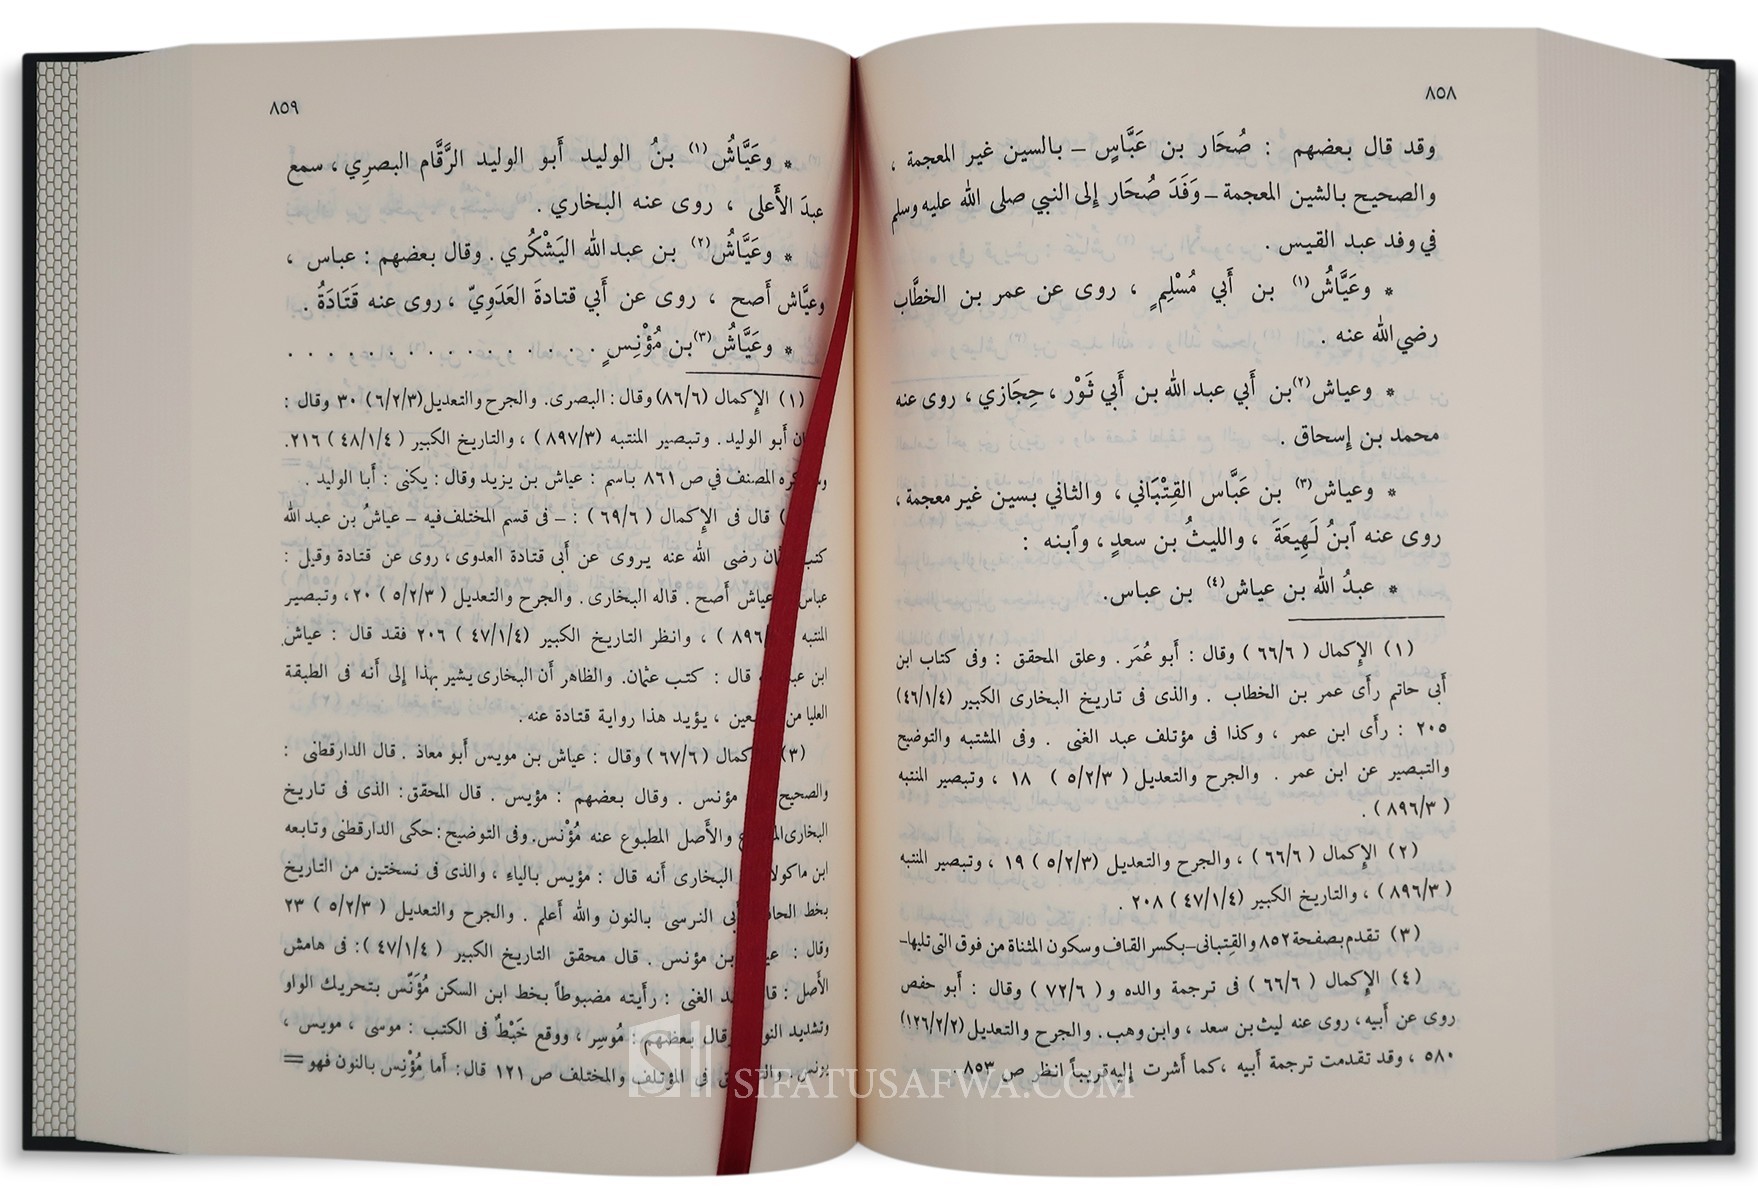 ٨٥٨
وقد قال بعضهم : صُحَار بن عَبَّاسٍ – بالسين غير المعجمة ،
والصحيح بالشين المعجمة – وَفَدَ صُحَار إلى النبي صلى الله عليه وسلم
في وفد عبد القيس .
* وعَيَّاشُ(١) بن أَبي مُسْلِمٍ ، روى عن عمر بن الخطَّاب
رضي الله عنه .
* وعياش(٢) بن أَبي عبد الله بن أَبي ثَوْر ، حِجَازي ، روى عنه
محمد بن إسحاق .
* وعياش(٣) بن عَبَّاس القِتْبَاني ، والثاني بسين غير معجمة ،
روى عنه ٱبنُ لَهِيعَةَ ، والليثُ بن سعدٍ ، وٱبنه :
* عبدُ الله بن عياش(٤) بن عباس.
(١) الإكمال ( ٦٦/٦ ) وقال : أَبو عُمَر . وعلق المحقق : وفى كتاب ابن
أبى حاتم رأى عمر بن الخطاب . والذى فى تاريخ البخارى الكبير (٤٦/١/٤)
٢٠٥ : رأى ابن عمر ، وكذا فى مؤتلف عبد الغنى . وفى المشتبه والتوضيح
والتبصير عن ابن عمر . والجرح والتعديل ( ٥/٢/٣ ) ١٨ ، وتبصير المنتبه
( ٨٩٦/٣ ) .
(٢) الإكمال ( ٦٦/٦ ) ، والجرح والتعديل (٥/٢/٣ ) ١٩ ، وتبصير المنتبه
( ٨٩٦/٣ ) ، والتاريخ الكبير (٤٧/١/٤ ) ٢٠٨ .
(٣) تقدم بصفحة ٨٥٢ والقِتبانى–بكسر القاف وسكون المثناة من فوق التى تليها–
(٤) الإكمال ( ٦٦/٦ ) فى ترجمة والده و ( ٧٢/٦ ) وقال : أبو حفص
روى عن أبيه ، روى عنه ليث بن سعد ، وابن وهب . والجرح والتعديل (١٢٦/٢/٢)
٥٨٠ ، وقد تقدمت ترجمة أبيه ، كما أشرت إليه قريباً انظر ص ٨٥٣ .
٨٥٩
* وعَيَّاشُ(١) بنُ الوليد أَبو الوليد الرَّقَّام البصرِي ، سمع
عبدَ الأَعلى ، روى عنه البخاري .
* وعَيَّاشُ(٢) بن عبد الله اليَشْكُري . وقال بعضهم : عباس ،
وعيَّاش أَصح ، روى عن أَبي قتادةَ العَدَوِيّ ، روى عنه قَتَادَةُ .
* وعَيَّاشُ(٣) بن مُؤْنِسٍ . . . . . . . . . . . . . . .
(١) الإكمال (٨٦/٦) وقال : البصرى. والجرح والتعديل(٦/٢/٣) ٣٠ وقال :
أبو الوليد . وتبصير المنتبه (٨٩٧/٣ ) ، والتاريخ الكبير ( ٤٨/١/٤ ) ٢١٦.
المصنف في ص ٨٦١ باسم : عياش بن يزيد وقال : يكنى : أبا الوليد .
قال فى الإكمال ( ٦٩/٦ ) : – فى قسم المختلف فيه – عياشُ بن عبد الله
رضى الله عنه يروى عن أبى قتادة العدوى ، روى عن قتادة وقيل :
عباس عياش أصح . قاله البخارى . والجرح والتعديل ( ٥/٢/٣ ) ٢٠ ، وتبصير
المنتبه ) ، وانظر التاريخ الكبير (٤٧/١/٤ ) ٢٠٦ فقد قال : عياش
ابن قال : كتب عثمان. والظاهر أن البخارى يشير بهذا إلى أنه فى الطبقة
العليا من ، يؤيد هذا رواية قتادة عنه .
(٣) ( ٦٧/٦ ) وقال : عياش بن مويس أبو معاذ . قال الدارقطنى :
والصحيح مؤنس . وقال بعضهم : مؤيس . قال المحقق : الذى فى تاريخ
والأصل المطبوع عنه مُؤْنس. وفى التوضيح : حكى الدارقطنى وتابعه
ابن ماكولا البخارى أنه قال : مؤيس بالياءِ ، والذى فى نسختين من التاريخ
بخط أبى النرسى بالنون والله أعلم . والجرح والتعديل ( ٥/٢/٣ ) ٢٣
وقال : بن مؤنس . قال محقق التاريخ الكبير ( ٤٧/١/٤ ): فى هامش
الأصل : الغنى : رأيته مضبوطاً بخط ابن السكن مُؤَنّس بتحريك الواو
وتشديد وقال بعظهم : مُوسِر ، ووقع خَبْطٌ فى الكتب : موسى ، مويس ،
يونس . فى المؤتلف والمختلف ص ١٢١ قال : أما مُؤْنِس بالنون فهو =
SIFATUSAFWA.COM